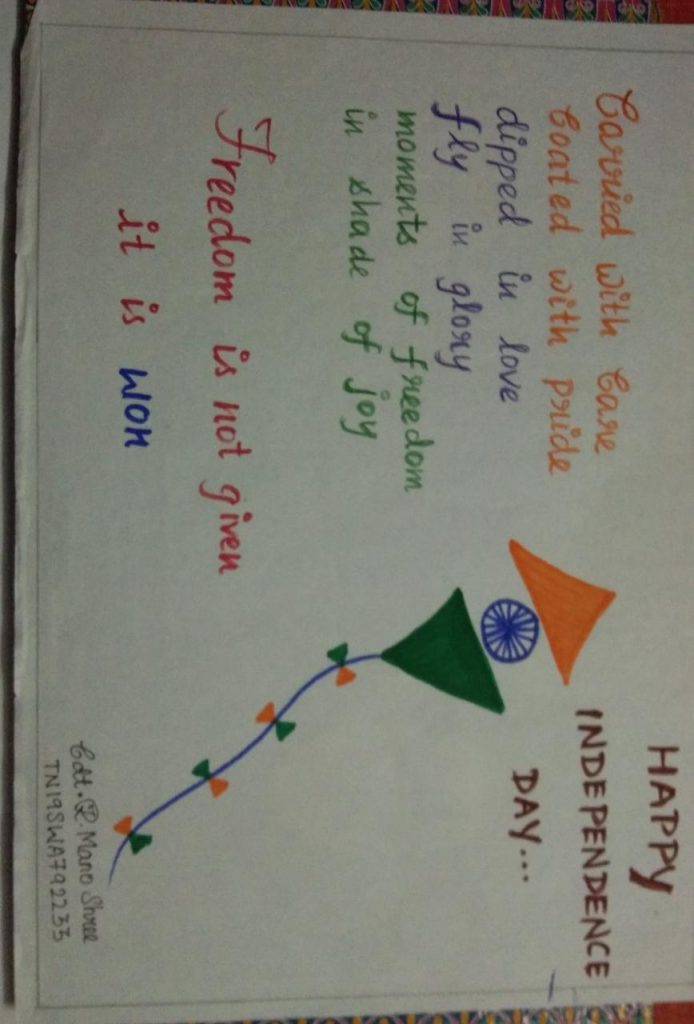 Carried with Care
Coated with pride
dipped in love
fly in glory
moments of freedom
in shade of joy
Freedom is not given
it is won
HAPPY
INDEPENDENCE
DAY...
Cdt. R. Mano Shree
TN19SWA792233